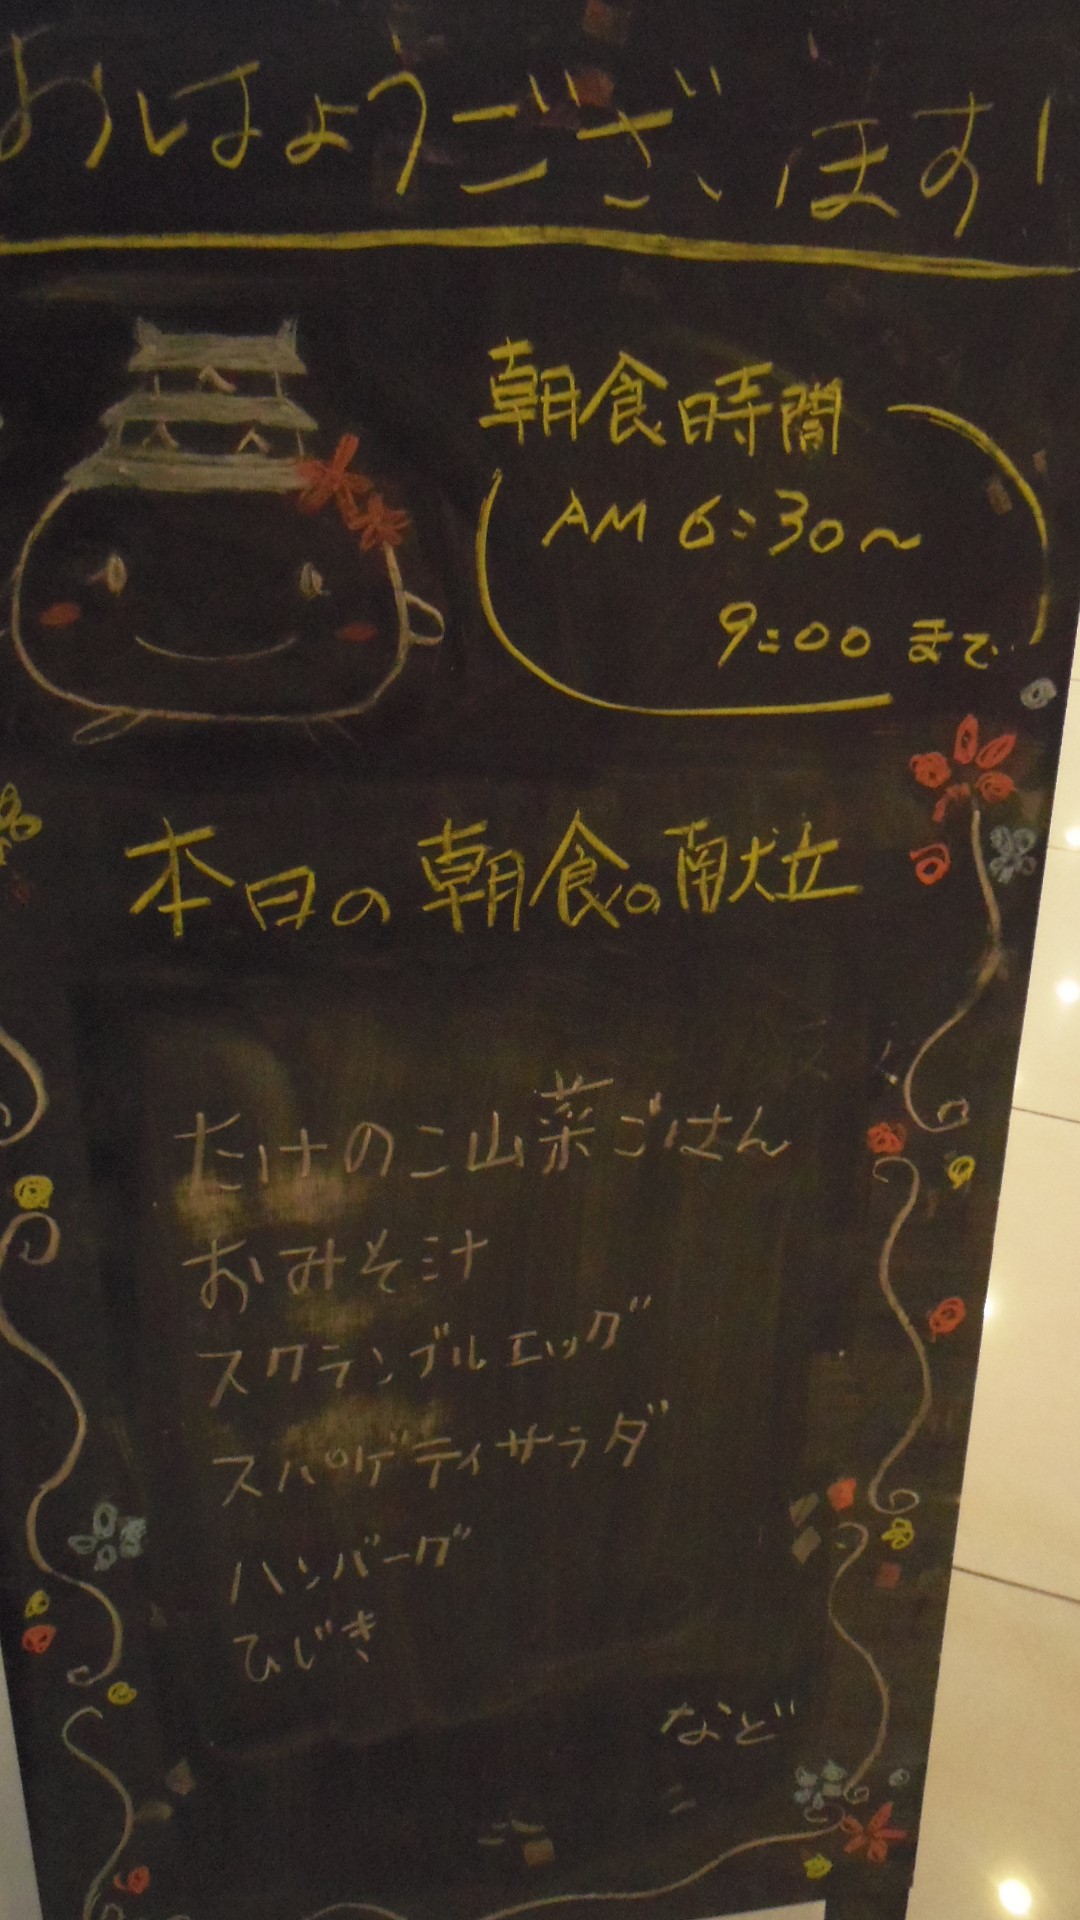 おはようございます!
朝食時間
AM 6:30~
9:00 まで
本日の朝食の献立
たけのこ山菜ごはん
おみそ汁
スクランブルエッグ
スパゲティサラダ
ハンバーグ
ひじき
など